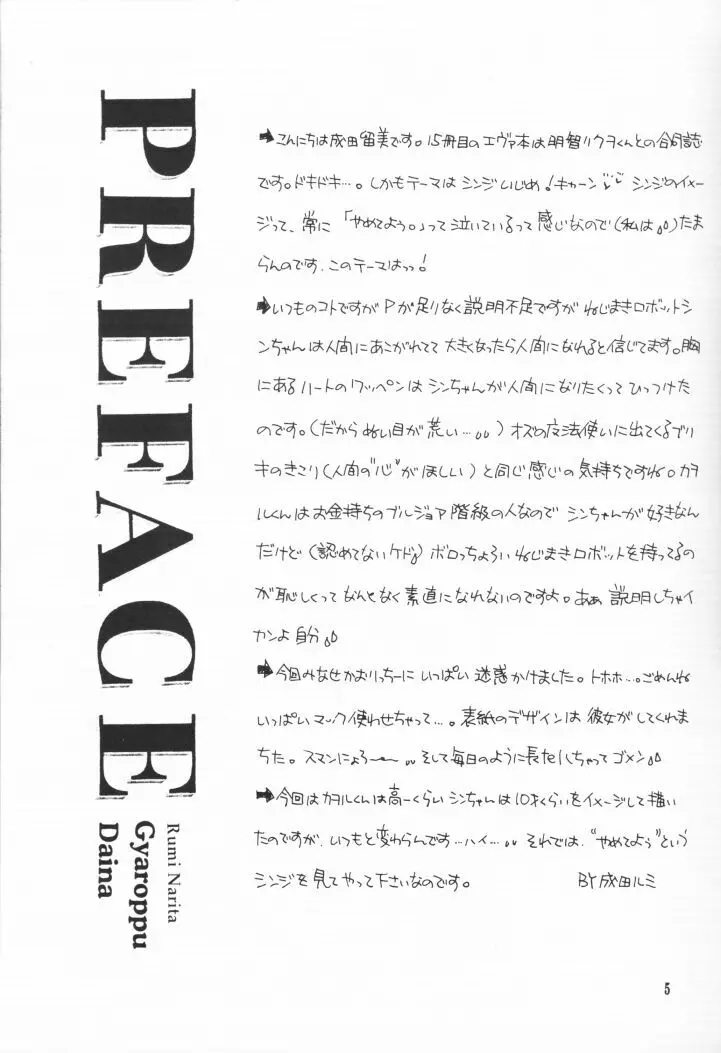 PREFACE
Rumi Narita
Gyaroppu
Daina
➡こんにちは成田留美です。15冊目のエヴァ本は明智リクヲくんとの合同誌
です。ドキドキ…。しかもテーマはシンジいじめ!キャーン シンジのイメー
ジって、常に「やめてよう。」って泣いているって感じなので(私は)たま
らんのです、このテーマはっっ!
➡いつものコトですがPが足りなく説明不足ですが ねじまきロボットシ
ンちゃんは人間にあこがれてて大きくなったら人間になれると信じてます。胸
にあるハートのワッペンはシンちゃんが人間になりたくってひっつけた
のです。(だからぬい目が荒い…。。)オズの魔法使いに出てくるブリ
キのきこり(人間の“心”がほしい)と同じ感じの気持ちですね。カヲ
ルくんはお金持ちのブルジョア階級の人なのでシンちゃんが好きなん
だけど(認めてないケド)ボロっちょろいねじまきロボットを持ってるの
が恥しくってなんとなく素直になれないのですよ。あぁ説明しちゃイ
カンよ自分
➡今回みなせかおりっちーにいっぱい迷惑かけました。トホホ…。ごめんね
いっぱいマック使わせちゃって…。表紙のデザインは彼女がしてくれま
ちた。スマンにょろ〜〜。。そして毎日のように長TELしちゃってゴメン
➡今回はカヲルくんは高一くらいシンちゃんは10才くらいをイメージして描い
たのですが、いつもと変わらんです…ハイ…。。それでは、“やめてよう”という
シンジを見てやって下さいなのです。 BY成田ルミ
5